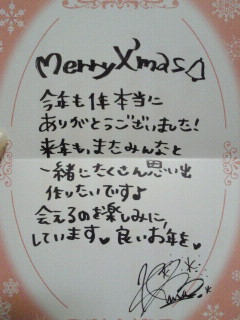 Merry Xmas
今年も1年本当に
ありがとうございました!
来年も、またみんなと
一緒にたくさん思い出
作りたいですよ
会えるのお楽しみに
しています♥良いお年を♥